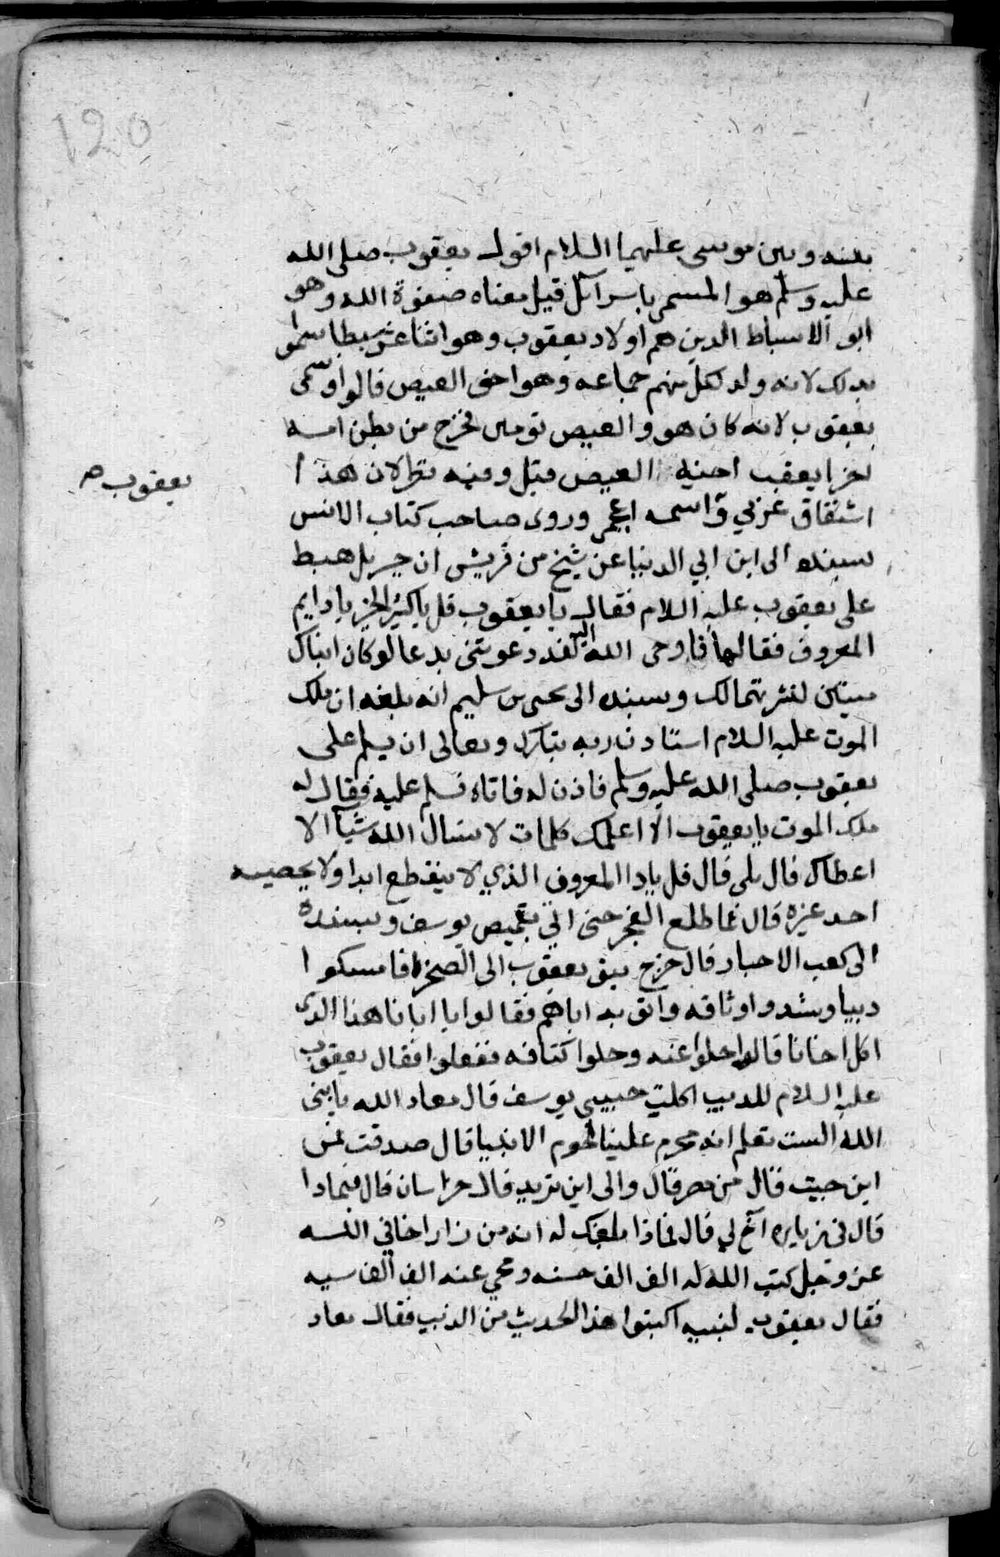 120
بينه وبين موسى عليهما السلام اقول يعقوب صلى الله
عليه وسلم هو المسمى باسرآئل قيل معناه صفوة الله وهو
ابو الاسباط الذين هم اولاد يعقوب وهو اثنا عشر سبطا سموا
بذلك لانه ولد لكل منهم جماعه وهو اخو العيص قالوا وسمى
يعقوب لانه كان هو والعيص تومين فخرج من بطن امه
اخذا بعقب اخيه العيص قيل وفيه نظر لان هذا
يعقوب ص
اشتقاق عربي واسمه اعجمي وروى صاحب كتاب الانس
بسنده الى ابن ابي الدنيا عن شيخ من قريش ان جبريل هبط
على يعقوب عليه السلام فقال يا يعقوب قل يا كثير الخير يا دايم
المعروف فقالها فاوحى الله اليه لقد دعوتني بدعا لو كان ابناك
ميتين لنشرتهما لك وبسنده الى يحيى بن سليم انه بلغه ان ملك
الموت عليه السلام استاذن ربه تبارك وتعالى ان يسلم على
يعقوب صلى الله عليه وسلم فاذن له فاتاه فسلم عليه فقال له
ملك الموت يا يعقوب الا اعلمك كلمات لا تسال الله شيآ الا
اعطاك قال بلى قال قل يا ذا المعروف الذي لا ينقطع ابدا ولا يحصيه
احد غيره قال فما طلع الفجر حتى اتي بقميص يوسف وبسنده
الى كعب الاحبار قال خرج بنو يعقوب الى الصحرا فامسكوا
ذيبا وشدوا وثاقه واتو به اباهم فقالوا يا ابانا هذا الذي
اكل اخانا قال حلوا عنه وحلوا كتافه ففعلوا فقال يعقوب
عليه السلام للذيب اكلت حبيبي يوسف قال معاذ الله يا نبي
الله الست تعلم انه محرم علينا لحوم الانبيا قال صدقت فمن
اين جيت قال من مصر قال والى اين تريد قال خراسان قال فيماذا
قال في زيارة اخ لي قال فماذا بلغك له انه من زار اخا في الله
عز وجل كتب الله له الف الف حسنه ومحي عنه الف الف سيه
فقال يعقوب لبنيه اكتبوا هذا الحديث من الذيب فقال معاذ